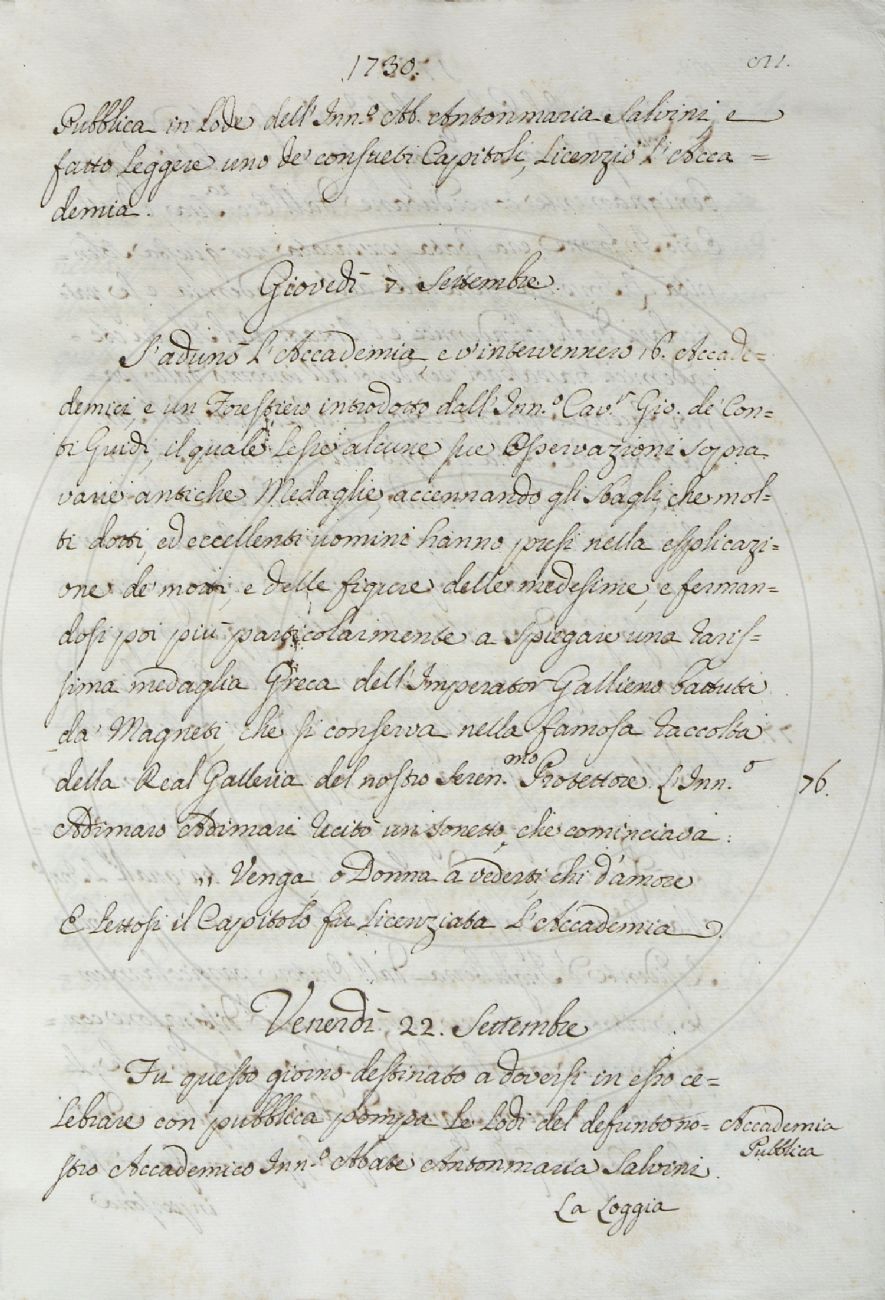 1730.
Pubblica in Lode dell'Inn.º Ab. Antonmaria Salvini, e
fatto Leggere uno de' consueti Capitoli, Licenziò L'Acca=
demia.
Giovedì 7. Settembre.
S'adunò L'Accademia, e v'intervennero 16. Accade=
demici, e un Forestiero introdotto dall'Inn.º Cav.r Gio. de' Con=
ti Guidi, il quale Lesse alcune sue Osservazioni sopra
varie antiche Medaglie, accennando gli sbagli, che mol=
ti dotti, ed eccellenti uomini hanno presi nella esplicazi=
one de' motti, e delle figure delle medesime, e ferman=
dosi poi più particolarmente a spiegare una raris=
sima medaglia Greca dell'Imperator Gallieno battuta
da' Magneti, che si conserva nella famosa raccolta
della Real Galleria del nostro Seren.mo Protettore. L'Inn.º 76.
Adimaro Adimari recitò un sonetto, che cominciava:
,, Venga, o Donna a vederti chi d'amore
E Lettosi il Capitolo fu Licenziata L'Accademia.
Venerdì 22. Settembre
Fu questo giorno destinato a doversi in esso ce=
Lebrare con pubblica pompa Le Lodi del defunto no= Accademia
Pubblica
stro Accademico Inn.º Abate Antonmaria Salvini.
La Loggia